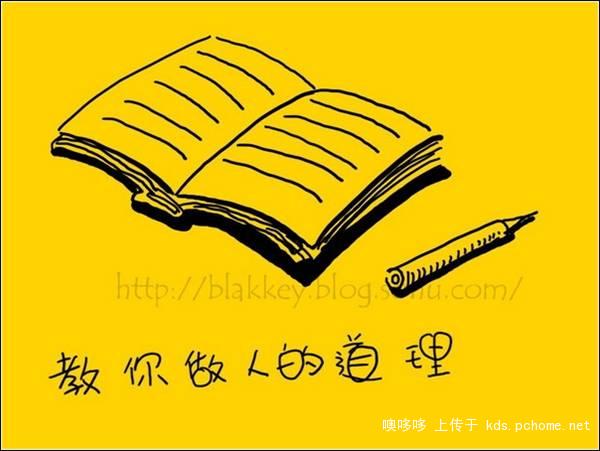 http://blakkey.blog.sohu.com/
教你做人的道理
噢哆哆 上传于 kds.pchome.net